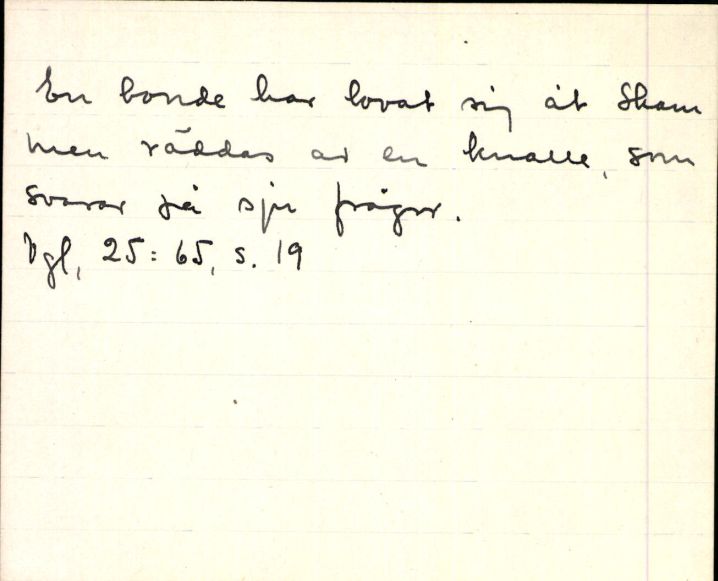 En bonde har lovat sig åt Skam
men räddas av en knalle, som
svarar på sju frågor.
Vgl, 25:65, s. 19